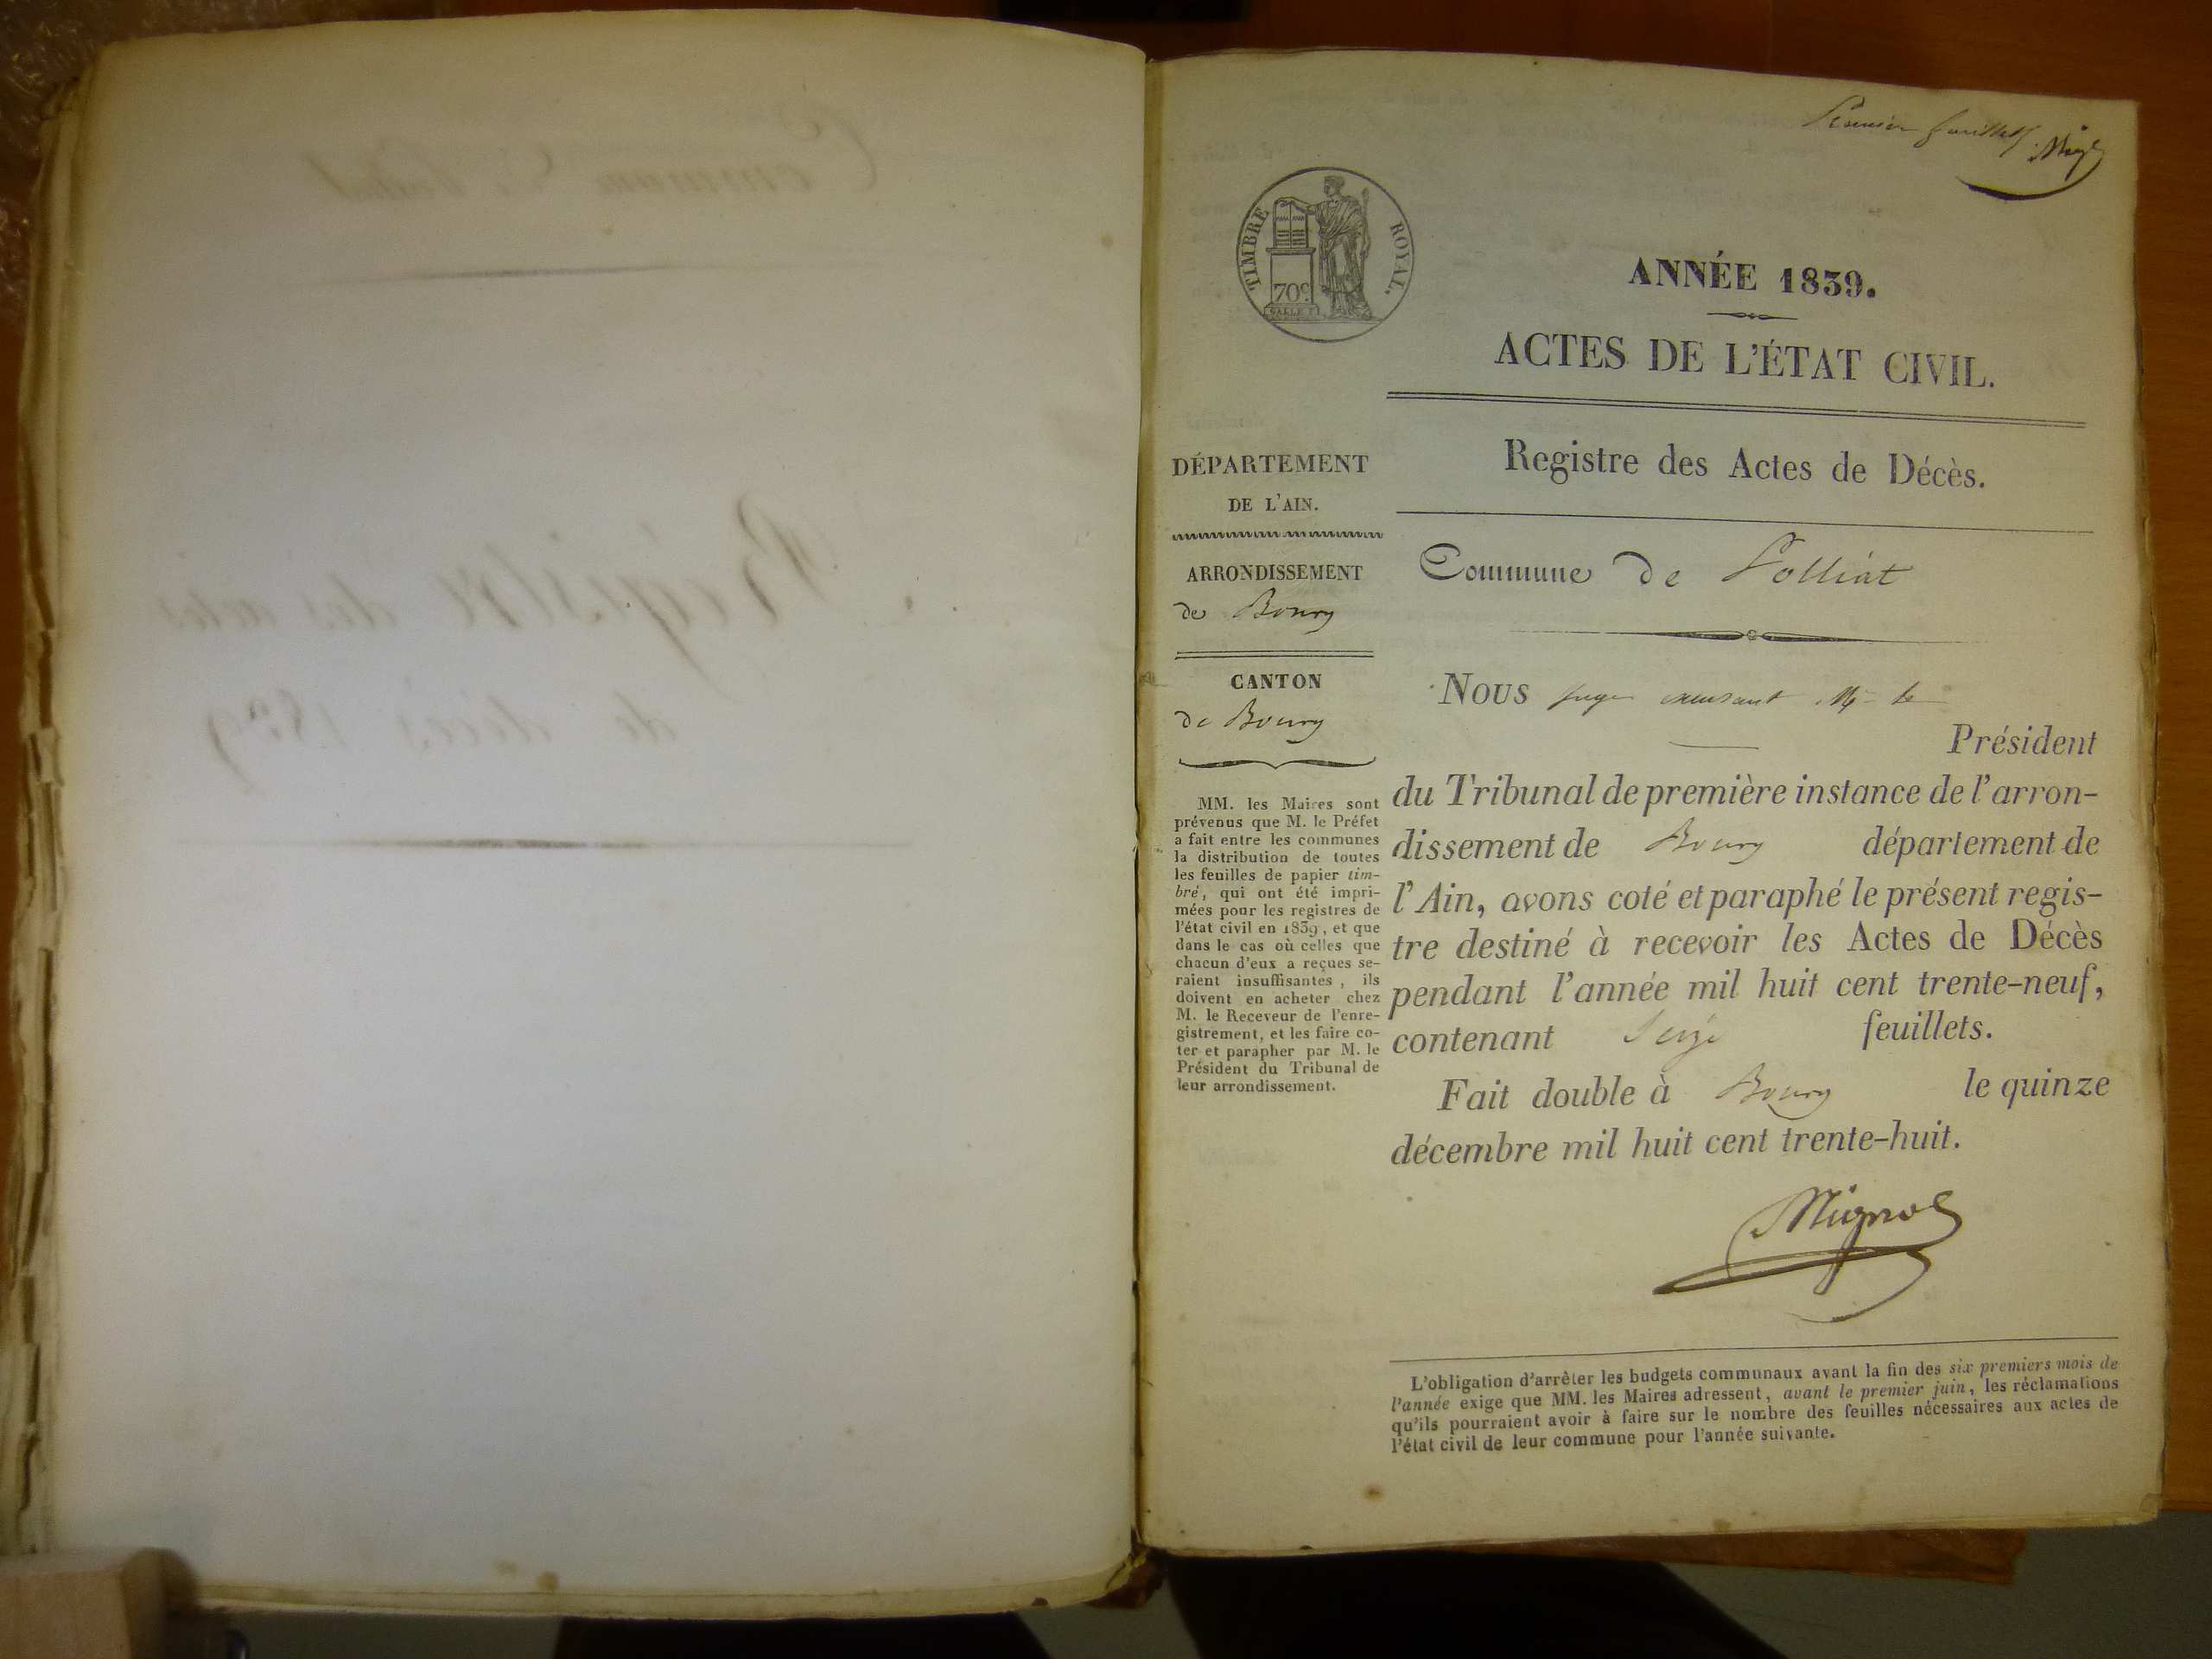 Commune de Polliat
Régistre des actes
de décès 1839
Premier feuillet
TIMBRE ROYAL.
70c
ANNÉE 1839.
ACTES DE L'ÉTAT CIVIL.
Registre des Actes de Décès.
Commune de Polliat
DÉPARTEMENT
DE L'AIN.
ARRONDISSEMENT
de Bourg
CANTON
de Bourg
MM. les Maires sont
prévenus que M. le Préfet
a fait entre les communes
la distribution de toutes
les feuilles de papier tim-
bré, qui ont été impri-
mées pour les registres de
l'état civil en 1839, et que
dans le cas où celles que
chacun d'eux a reçues se-
raient insuffisantes, ils
doivent en acheter chez
M. le Receveur de l'enre-
gistrement, et les faire co-
ter et parapher par M. le
Président du Tribunal de
leur arrondissement.
Nous juge excusant Mr le
Président
du Tribunal de première instance de l'arron-
dissement de Bourg département de
l'Ain, avons coté et paraphé le présent regis-
tre destiné à recevoir les Actes de Décès
pendant l'année mil huit cent trente-neuf,
contenant Seize feuillets.
Fait double à Bourg le quinze
décembre mil huit cent trente-huit.
L'obligation d'arrêter les budgets communaux avant la fin des six premiers mois de
l'année exige que MM. les Maires adressent, avant le premier juin, les réclamations
qu'ils pourraient avoir à faire sur le nombre des feuilles nécessaires aux actes de
l'état civil de leur commune pour l'année suivante.